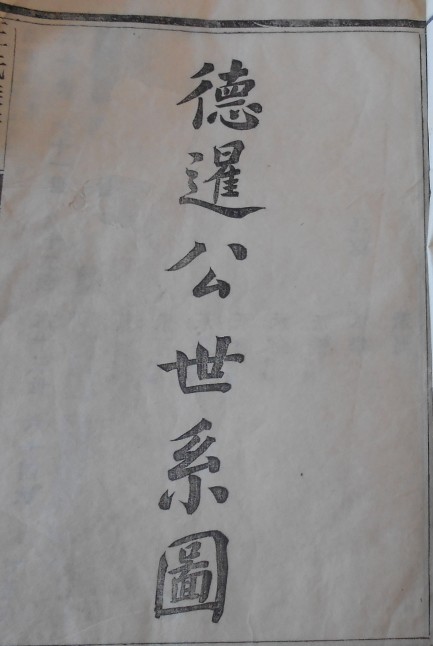 德暹公世系圖